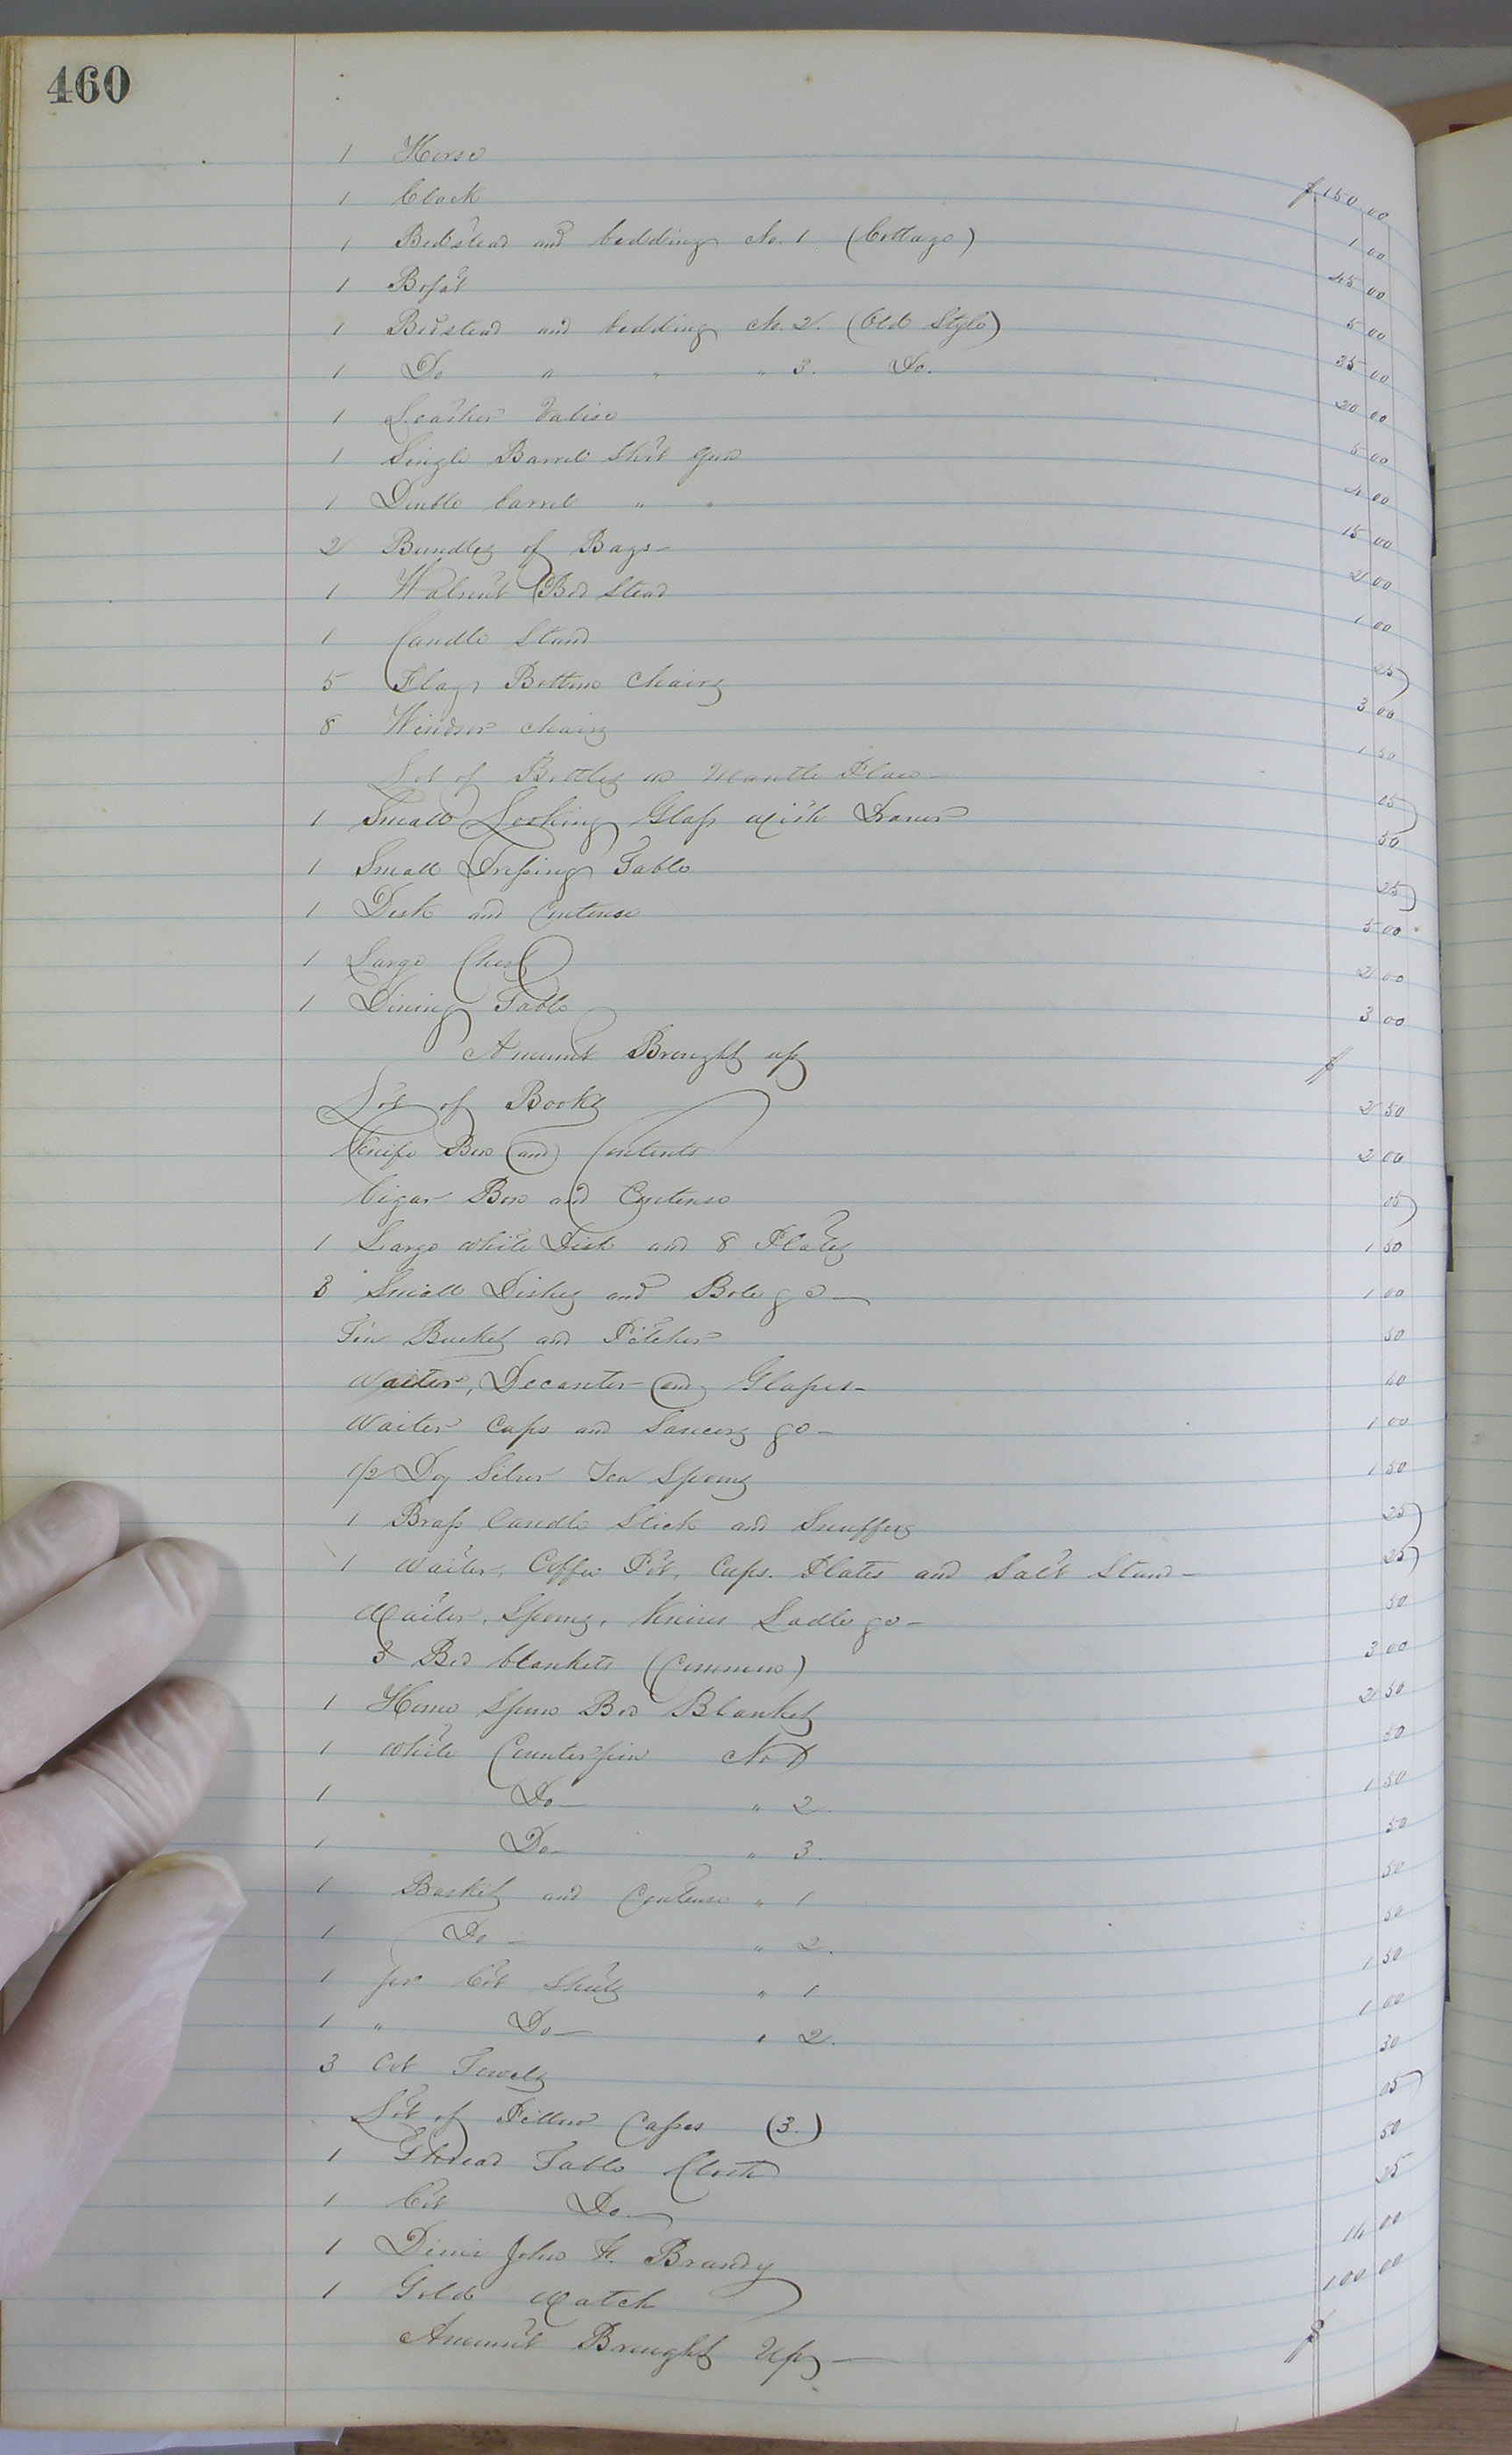 460
1 Horse $150 00
1 Clock 1 00
1 Bedstead and bedding No. 1 (Cottage) 45 00
1 Bofat 5 00
1 Bedstead and bedding No. 2. (Old Style) 35 00
1 Do " " " 3. Do. 20 00
1 Leather Valise 5 00
1 Single Barrel Shot gun 4 00
1 Double barrel " " 15 00
2 Bundles of Bags 2 00
1 Walnut Bed Stead 1 00
1 Candle Stand 25
5 Flag Bottom Chairs 3 00
8 Windsor chairs 1 50
Lot of Bottles on Mantle Place 25
1 Small Looking Glass with Drawer 50
1 Small Dressing Table 25
1 Desk and Contense 5 00
1 Large Chest 2 00
1 Dining Table 3 00
Amount Brought up $
Lot of Books 2 50
Knife Box and Contents 2 00
Cigar Box and Contense 05
1 Large white Dish and 8 Plates 1 50
3 Small Dishes and Bole &c 1 00
Tin Bucket and Pitcher 50
Waiter, Decanter and Glasses 40
Waiter Cups and Saucers &c 1 00
1/2 Doz Silver Tea Spoons 1 50
1 Brass Candle Stick and Snuffers 25
1 Waiter, Coffee Pot, Cups. Plates and Salt Stand 25
Waiter, Spoons, Knives Ladle &c 50
3 Bed blankets (Common) 3 00
1 Home Spun Bed Blanket 2 50
1 White Counterpin No 1 50
1 Do " 2. 1 50
1 Do " 3. 50
1 Basket and Contense " 1 50
1 Do " 2. 50
1 pr Cot Sheets " 1 1 50
1 " Do " 2. 1 00
3 Cot Towels 30
Lot of Pillow Cases (3.) 05
1 Thread Table Cloth 50
1 Cot Do 25
1 Dimi John F. Brandy 14 00
1 Gold Watch 100 00
Amount Brought Up $